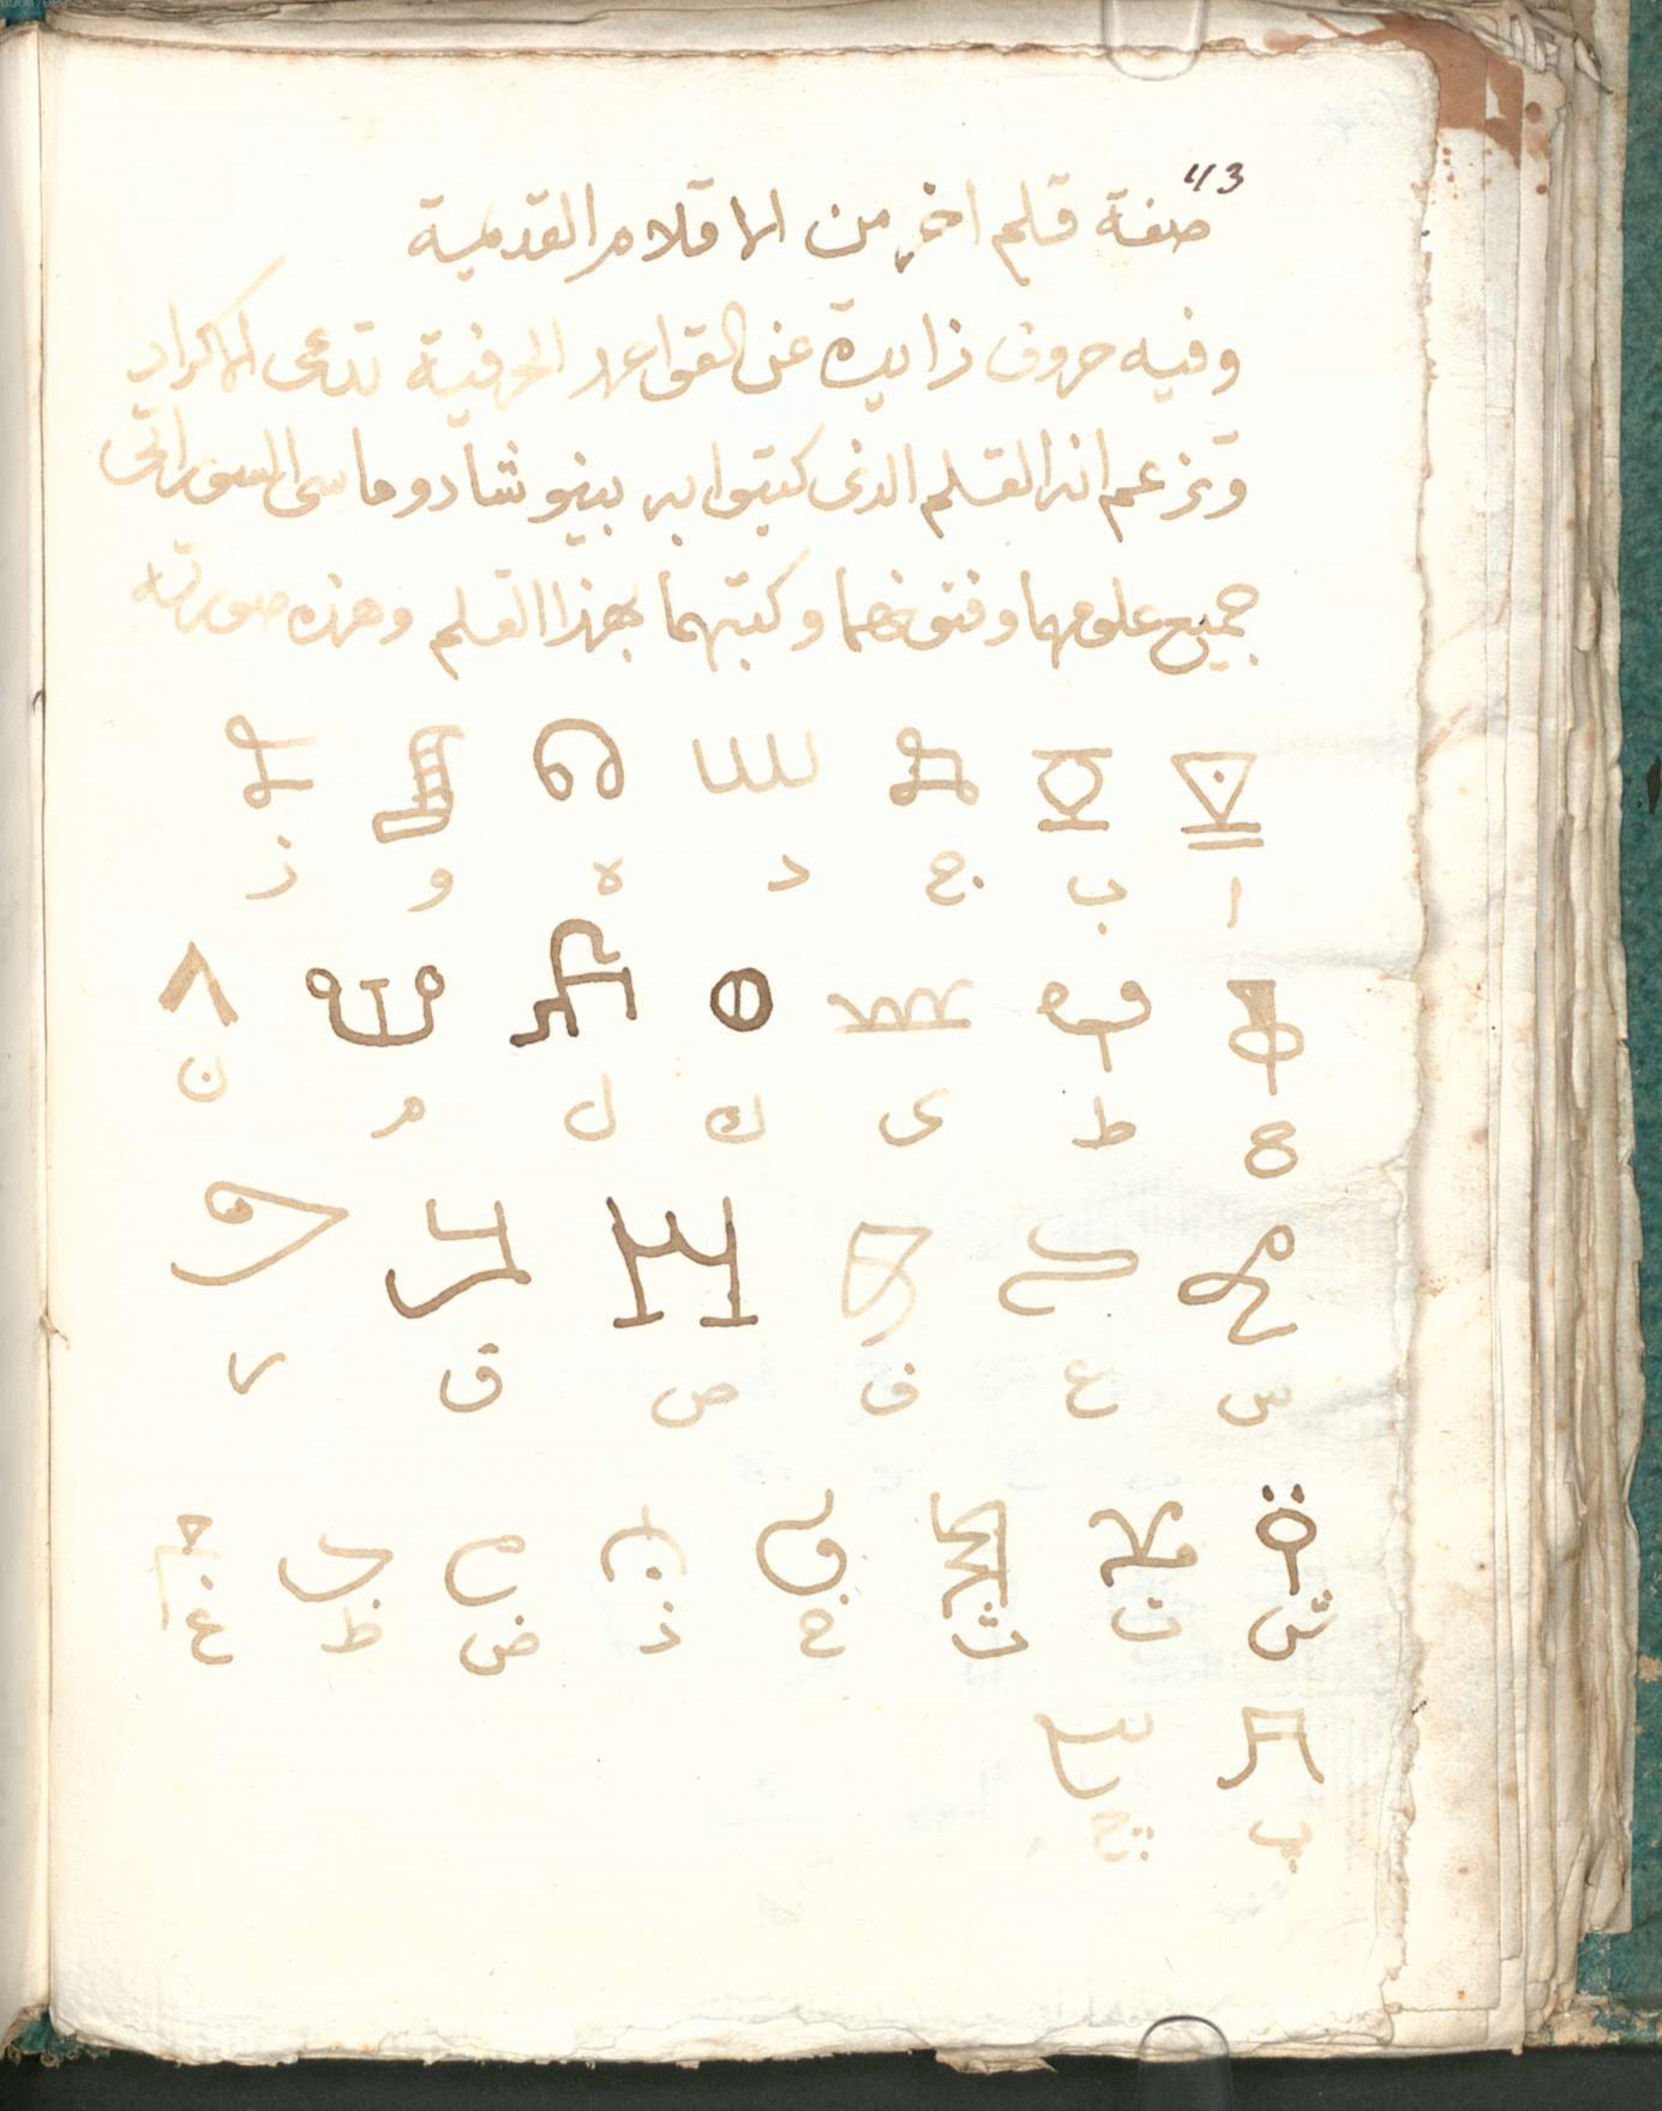 43
صفة قلم اخر من الاقلام القديمية
وفيه حروف زايدة عن القواعد الحرفية تدعى الاكراد
وتزعم انه القلم الذى كتبوا به بينوشاد وماسى السوراتى
جميع علومهما وفنونهما وكتبهما بهذا القلم وهذه صورته
ا ب ج د ه و ز
ح ط ى ك ل م ن
س ع ف ص ق ر
ش ت ث خ ذ ض ظ غ
پ چ